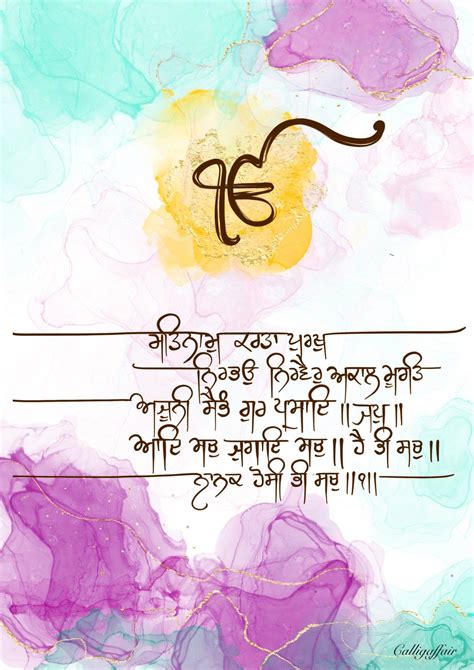 ੴ
ਸਤਿਨਾਮੁ ਕਰਤਾ ਪੁਰਖੁ
ਨਿਰਭਉ ਨਿਰਵੈਰੁ ਅਕਾਲ ਮੂਰਤਿ
ਅਜੂਨੀ ਸੈਭੰ ਗੁਰ ਪ੍ਰਸਾਦਿ ॥ ਜਪੁ ॥
ਆਦਿ ਸਚੁ ਜੁਗਾਦਿ ਸਚੁ ॥ ਹੈ ਭੀ ਸਚੁ
ਨਾਨਕ ਹੋਸੀ ਭੀ ਸਚੁ ॥੧॥
Calligaffair